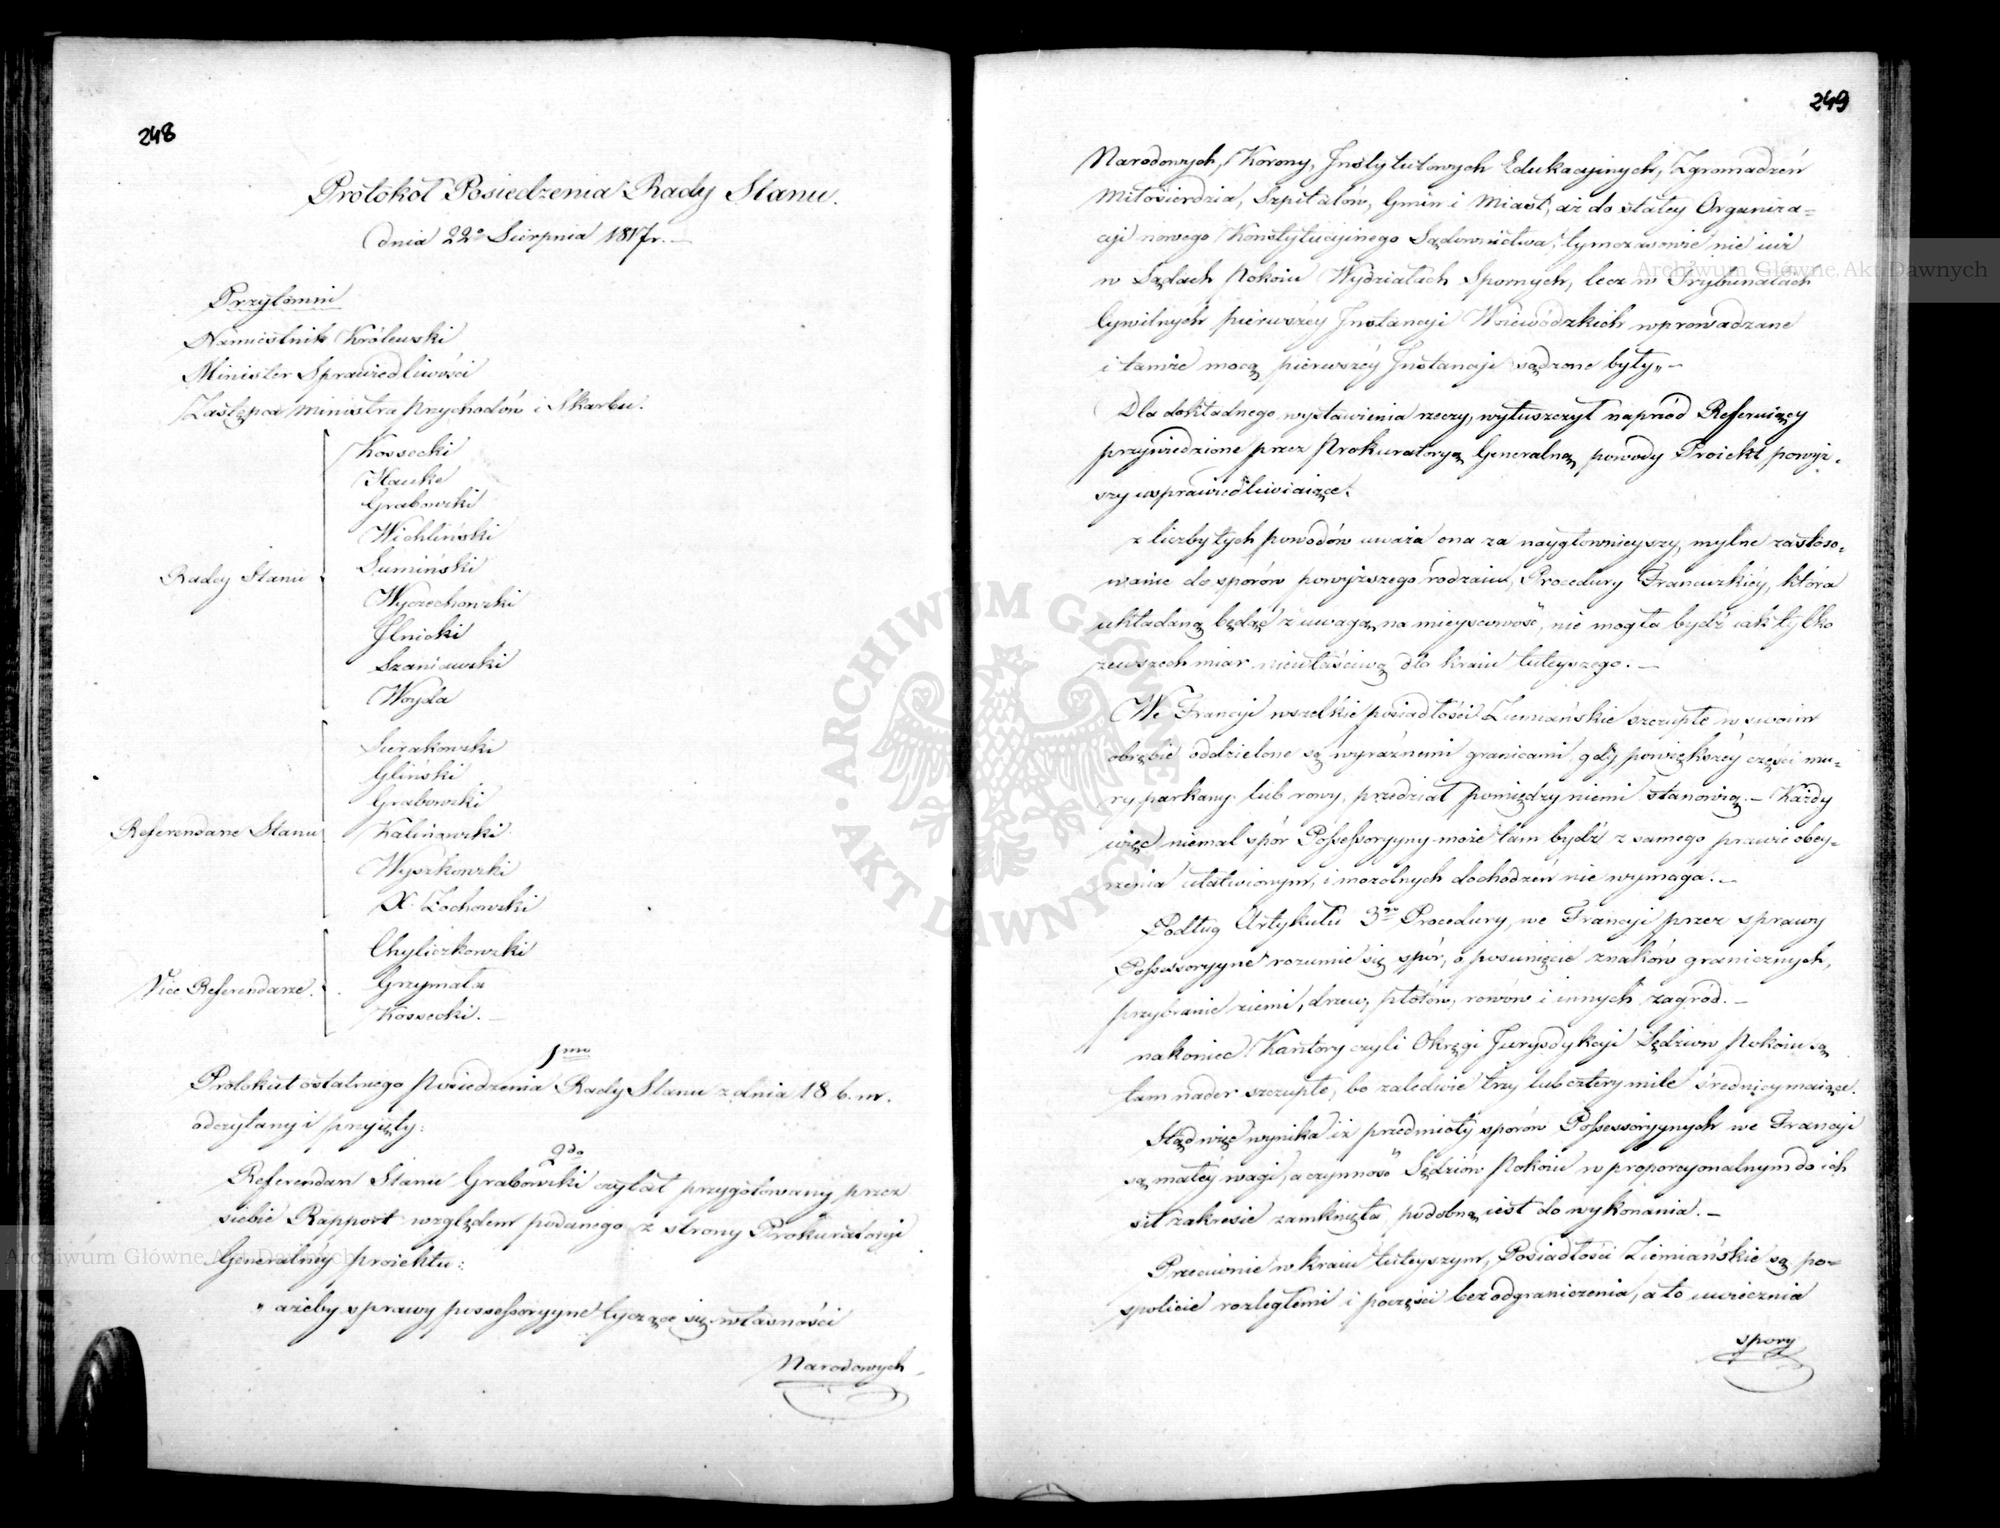 248
Protokół Posiedzenia Rady Stanu.
dnia 22º Sierpnia 1817r. —
Przytomni
Namiestnik Królewski
Minister Sprawiedliwości
Zastępca Ministra Przychodów i Skarbu.
Radcy Stanu
Kossecki
Hauke
Grabowski
Wichliński
Sumiński
Wyczechowski
Ilnicki
Szaniawski
Woyda
Referendarze Stanu
Sierakowski
Gliński
Grabowski
Kalinowski
Wyszkowski
X. Żochowski
Vice Referendarze.
Chyliczkowski
Grzymała
Kossecki. —
1mo
Protokuł ostatniego Posiedzenia Rady Stanu z dnia 18 b. m.
odczytany i przyięty:
2do
Referendarz Stanu Grabowski czytał przygotowany przez
siebie Rapport względem podanego z strony Prokuratoryi
Generalnéy proiektu:
„ ażeby sprawy possessoryyne tyczące się własności
Narodowych
249
Narodowych, Korony, Instytutowych Edukacyinych, Zgromadzeń
Miłosierdzia, Szpitalów, Gmin i Miast, aż do stałey Organiza=
cyi nowego Konstytucyinego Sądownictwa, tymczasowie nie iuż
w Sądach Pokoiu Wydziałach Spornych, lecz w Trybunałach
Cywilnych pierwszéy Instancyi Woiewódzkich wprowadzane
i tamże mocą pierwszéy Instancyi sądzone były„ —
Dla dokładnego wystawienia rzeczy, wyłuszczył naprzód Referuiący
przywiedzione przez Prokuratoryą Generalną powody Proiekt powyż-
szy usprawiedliwiaiące.
z liczby tych powodów uważa ona za naygłownieyszy, mylne zastoso-
wanie do sporów powyższego rodzaiu, Procedury Francuzkiéy, która
układaną będąc z uwagą na mieyscowość, nie mogła bydź iak tylko
zewszech miar niewłaściwą dla kraiu tuteyszego. —
We Francyi wszelkie posiadłości Ziemiańskie szczupłe w swoim
obrębie oddzielone są wyraźnemi granicami, gdy powiększéy części mu-
ry, parkany lub rowy, przedział pomiędzy niemi stanowią. — Każdy
więc niemal spór Possessoryyny może tam bydź z samego prawie obey-
rzenia ułatwionym, i mozolnych dochodzeń nie wymaga. —
Podług Artykułu 3go Procedury, we Francyi przez sprawy
Possessoryyne rozumie się spór, o posunięcie znaków granicznych,
przybranie ziemi, drzew, płotów, rowów i innych zagród. —
nakoniec Kantony czyli Okręgi Jurysdykcyi Sędziów Pokoiu są
tam nader szczupłe, bo zaledwie trzy lub cztery mile średnicy maiące.
Stąd więc wynika iż przedmioty sporów Possessoryynych we Francyi
są małéy wagi, a czynność Sędziów Pokoiu w proporcyonalnym do ich
sił zakresie zamknięta, podobną iest do wykonania. —
Przeciwnie w kraiu tuteyszym, Posiadłości Ziemiańskie są po=
spolicie rozległemi i poczęści bez odgraniczenia, a to uwiecznia
spory
Archiwum Główne Akt Dawnych
Archiwum Główne Akt Dawnych
ARCHIWUM GŁÓWNE AKT DAWNYCH